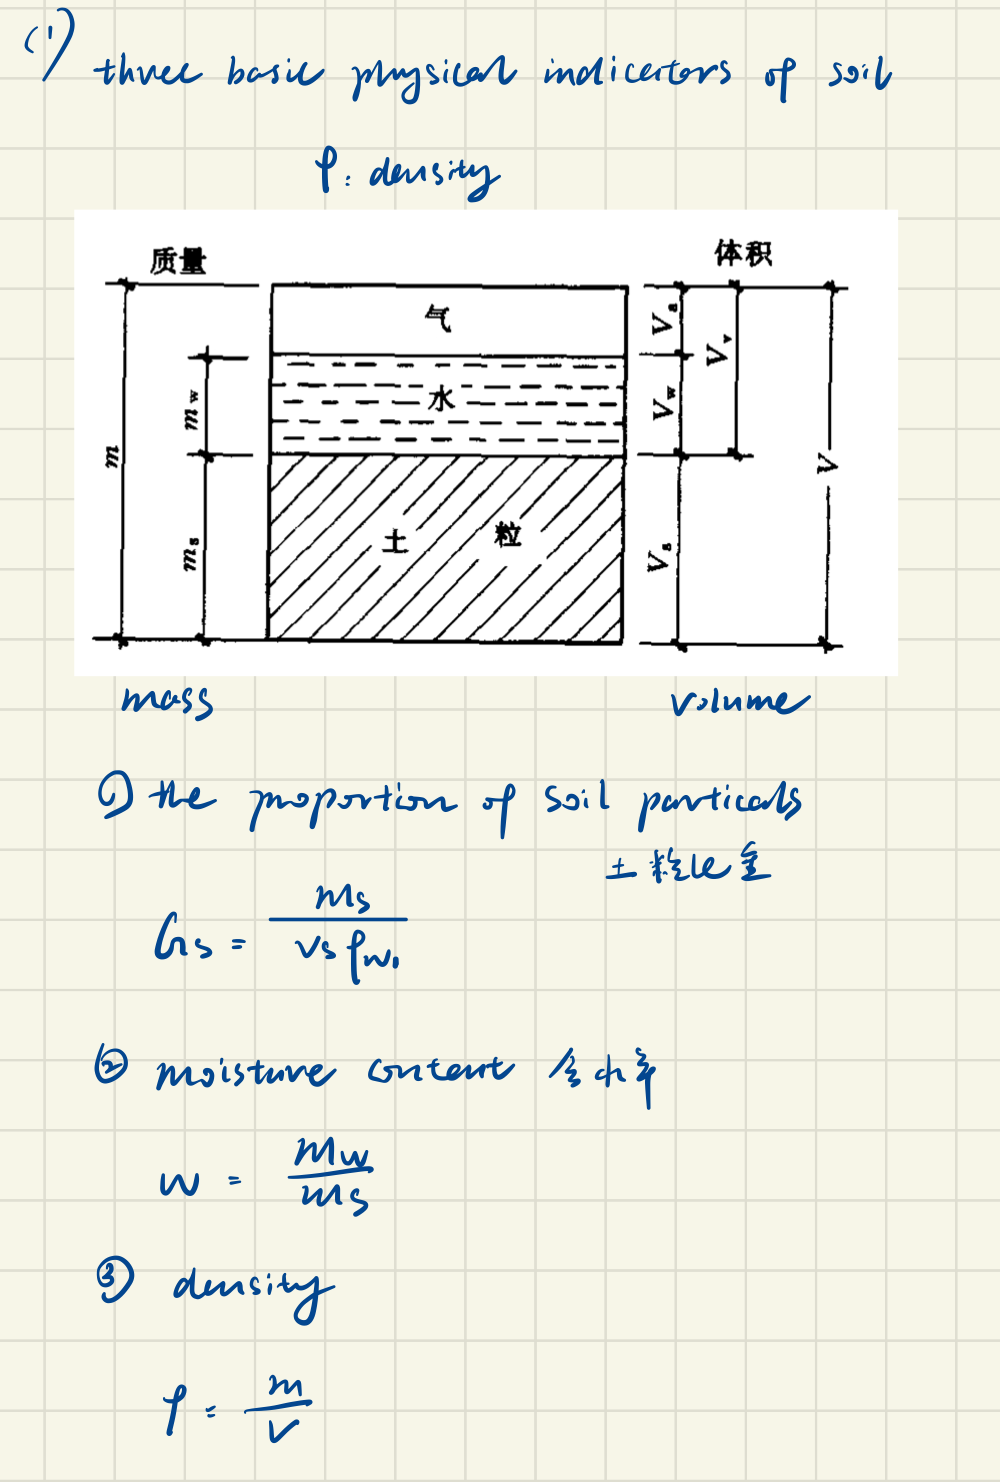 (1) three basic physical indicators of soil
ρ: density
质量 体积
气
水
土 粒
m
m w
m s
V a
V w
V v
V s
V
mass volume
① the proportion of soil particals
土粒比重
Gs = ms / vs ρw.
② moisture content 含水率
w = mw / ms
③ density
ρ = m / V